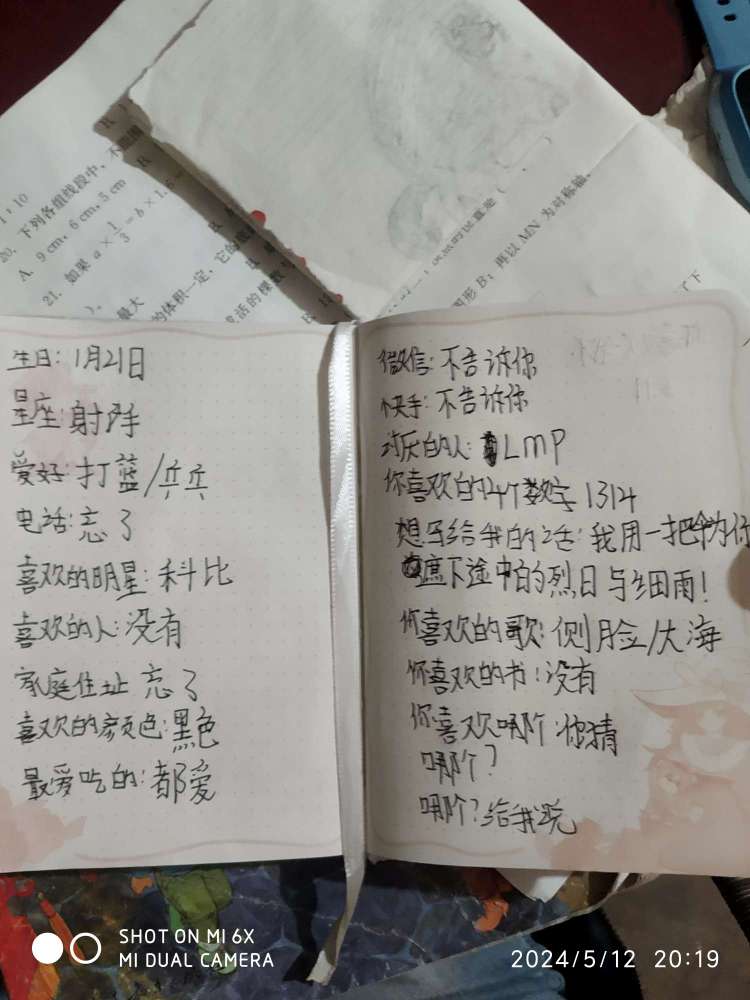 1:10
20. 下列各组线段中，不能围
A. 9 cm, 6 cm, 5 cm B.
21. 如果 a × 1/3 = b × 1.6 =
最大
的体积一定，它的底
成活的棵数
图形 B；再以 MN 为对称轴，
生日：1月21日
星座：射手
爱好：打蓝/乒乓
电话：忘了
喜欢的明星：科比
喜欢的人：没有
家庭住址 忘了
喜欢的颜色：黑色
最爱吃的：都爱
微信：不告诉你
快手：不告诉你
讨厌的人：LMP
你喜欢的4个数字 1314
想写给我的话：我用一把伞为你
遮下途中的烈日与细雨！
你喜欢的歌：侧脸/大海
你喜欢的书：没有
你喜欢哪个：你猜
哪个？
哪个？给我说
SHOT ON MI 6X
MI DUAL CAMERA
2024/5/12 20:19